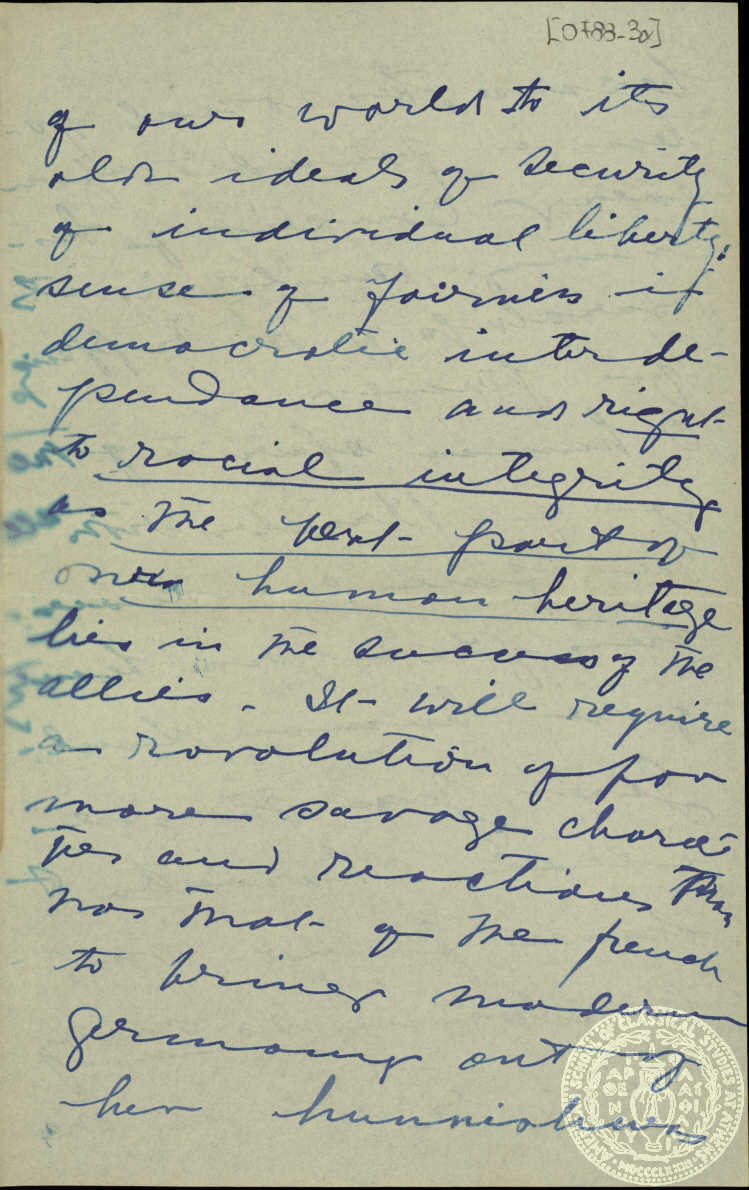 [OF83-30]
of our world to its
old ideals of security
of individual liberty,
sense of fairness if
democratic interde-
pendance and right
to racial integrity
as the best part of
one's human heritage
lies in the success of the
allies. It will require
a rovolution of for
more savage charac-
ter and reactions than
was that of the french
to bring modern
Germany out of
her hunnishness
AMERICAN SCHOOL OF CLASSICAL STUDIES AT ATHENS
ΠΑΡΘΕΝΟΥ ΦΙΛΑΣ
MDCCCLXXXI